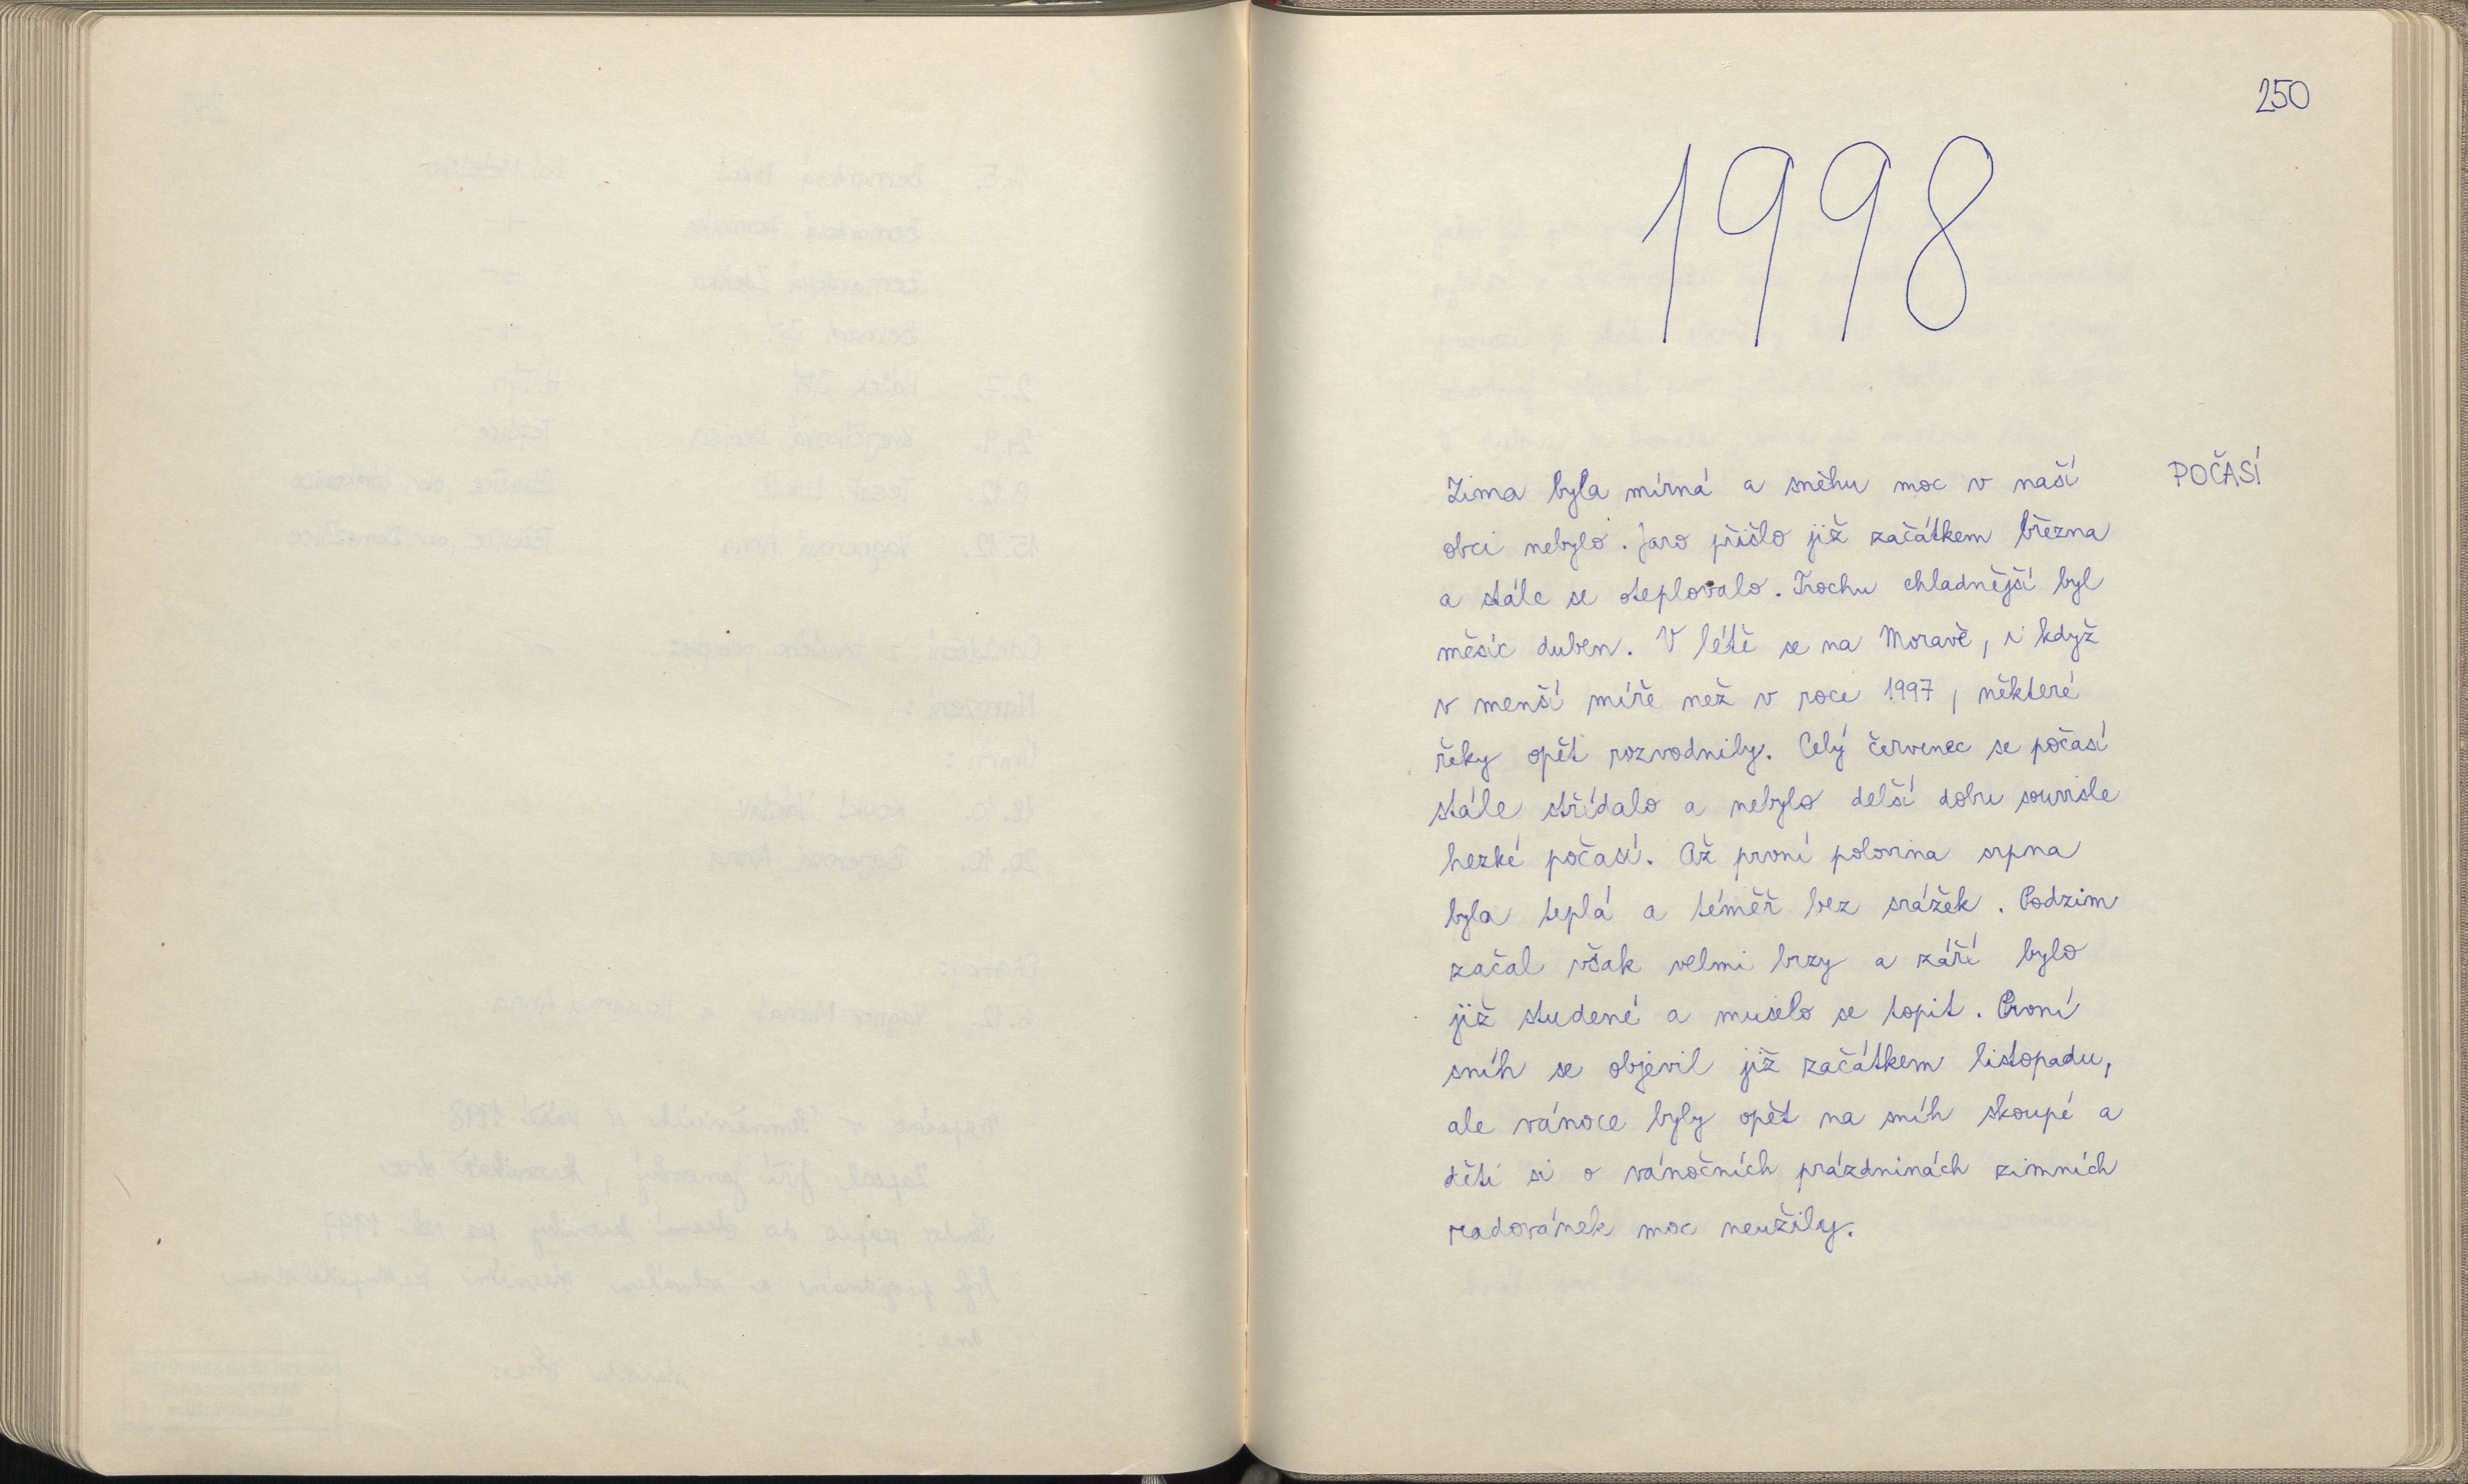 250
1998
POČASÍ
Zima byla mírná a sněhu moc v naší
obci nebylo. Jaro přišlo již začátkem března
a stále se oteplovalo. Trochu chladnější byl
měsíc duben. V létě se na Moravě, i když
v menší míře než v roce 1997, některé
řeky opět rozvodnily. Celý červenec se počasí
stále střídalo a nebylo delší dobu souvisle
hezké počasí. Až první polovina srpna
byla teplá a téměř bez srážek. Podzim
začal však velmi brzy a září bylo
již studené a muselo se topit. První
sníh se objevil již začátkem listopadu,
ale vánoce byly opět na sníh skoupé a
děti si o vánočních prázdninách zimních
radovánek moc neužily.